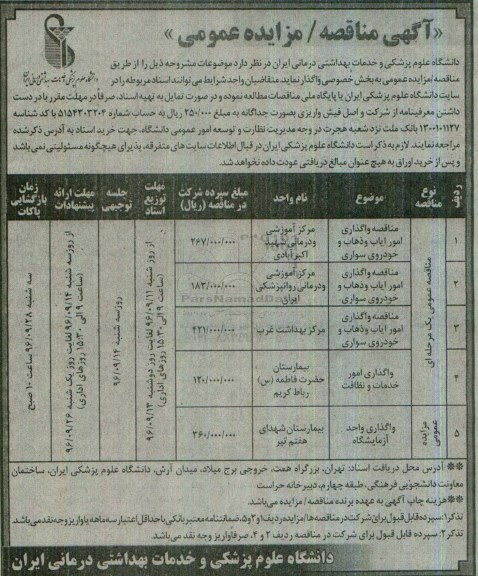 «آگهی مناقصه / مزایده عمومی»
دانشگاه علوم پزشکی و خدمات بهداشتی درمانی ایران در نظر دارد موضوعات مشروحه ذیل را از طریق
مناقصه/مزایده عمومی به بخش خصوصی واگذار نماید. متقاضیان واجد شرایط می توانند اسناد مربوطه را در
سایت دانشگاه علوم پزشکی ایران یا پایگاه ملی مناقصات مطالعه نموده و در صورت تمایل به تهیه اسناد، صرفاً در مهلت مقرر با در دست
داشتن معرفینامه از شرکت و اصل فیش واریزی بصورت جداگانه به مبلغ ۲۵۰/۰۰۰ ریال به حساب شماره ۵۱۵۴۳۰۳۲۰۴ با کد شناسه
۱۳۰۰۱۰۱۱۲۷ بانک ملت نزد شعبه هجرت در وجه مدیریت نظارت و توسعه امور عمومی دانشگاه، جهت خرید اسناد به آدرس ذکر شده
مراجعه نمایند. لازم به ذکر است دانشگاه علوم پزشکی ایران در قبال اطلاعات سایت های متفرقه، پذیرای هیچگونه مسئولیتی نمی باشد
و پس از خرید اوراق به هیچ عنوان مبالغ دریافتی عودت داده نخواهد شد.
ردیف
نوع مناقصه
موضوع
نام واحد
مبلغ سپرده شرکت در مناقصه (ریال)
مهلت توزیع اسناد
جلسه توجیهی
مهلت ارائه پیشنهادات
زمان بازگشایی پاکات
۱
مناقصه واگذاری امور ایاب وذهاب و خودروی سواری
مرکز آموزشی ودرمانی شهید اکبرآبادی
۲۶۷/۰۰۰/۰۰۰
۲
مناقصه واگذاری امور ایاب وذهاب و خودروی سواری
مرکز آموزشی ودرمانی روانپزشکی ایران
۱۸۳/۰۰۰/۰۰۰
۳
مناقصه واگذاری امور ایاب وذهاب و خودروی سواری
مرکز بهداشت غرب
۴۲۱/۰۰۰/۰۰۰
۴
واگذاری امور خدمات و نظافت
بیمارستان حضرت فاطمه (س) رباط کریم
۱۲۰/۰۰۰/۰۰۰
۵
واگذاری واحد آزمایشگاه
بیمارستان شهدای هفتم تیر
۳۶۰/۰۰۰/۰۰۰
مناقصه عمومی یک مرحله ای
مزایده عمومی
از روز شنبه ۹۶/۰۹/۱۱ لغایت روز دوشنبه ۹۶/۰۹/۱۳ (ساعت ۹ الی ۱۵:۳۰ روزهای اداری)
روز سه شنبه ۹۶/۰۹/۱۴
از روز سه شنبه ۹۶/۰۹/۱۴ لغایت روز یک شنبه ۹۶/۰۹/۲۶ (ساعت ۹ الی ۱۵:۳۰ روزهای اداری)
سه شنبه ۹۶/۰۹/۲۸ ساعت ۱۰ صبح
** آدرس محل دریافت اسناد: تهران، بزرگراه همت، خروجی برج میلاد، میدان آرش، دانشگاه علوم پزشکی ایران، ساختمان
معاونت دانشجویی فرهنگی، طبقه چهارم، دبیرخانه حراست
** هزینه چاپ آگهی به عهده برنده مناقصه / مزایده می باشد.
تذکر۱: سپرده قابل قبول برای شرکت در مناقصه ها / مزایده ردیف ۱و۳و۵، ضمانتنامه معتبر بانکی با حداقل اعتبار سه ماهه یا واریز وجه نقد می باشد.
تذکر۲: سپرده قابل قبول برای شرکت در مناقصه ردیف ۲ و ۴، صرفاً واریز وجه نقد می باشد.
دانشگاه علوم پزشکی و خدمات بهداشتی درمانی ایران